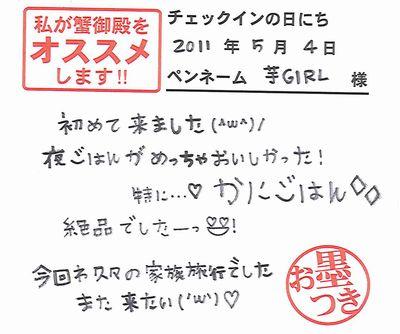 私が蟹御殿を
オススメ
します!!
チェックインの日にち
2011 年 5月 4日
ペンネーム 芋GIRL 様
初めて来ました(^ω^)/
夜ごはんがめっちゃおいしかった!
特に…♡ かにごはん◇◇
絶品でしたーっ!
今回ネ久々の家族旅行でした
また来たい('ω')♡
お墨つき